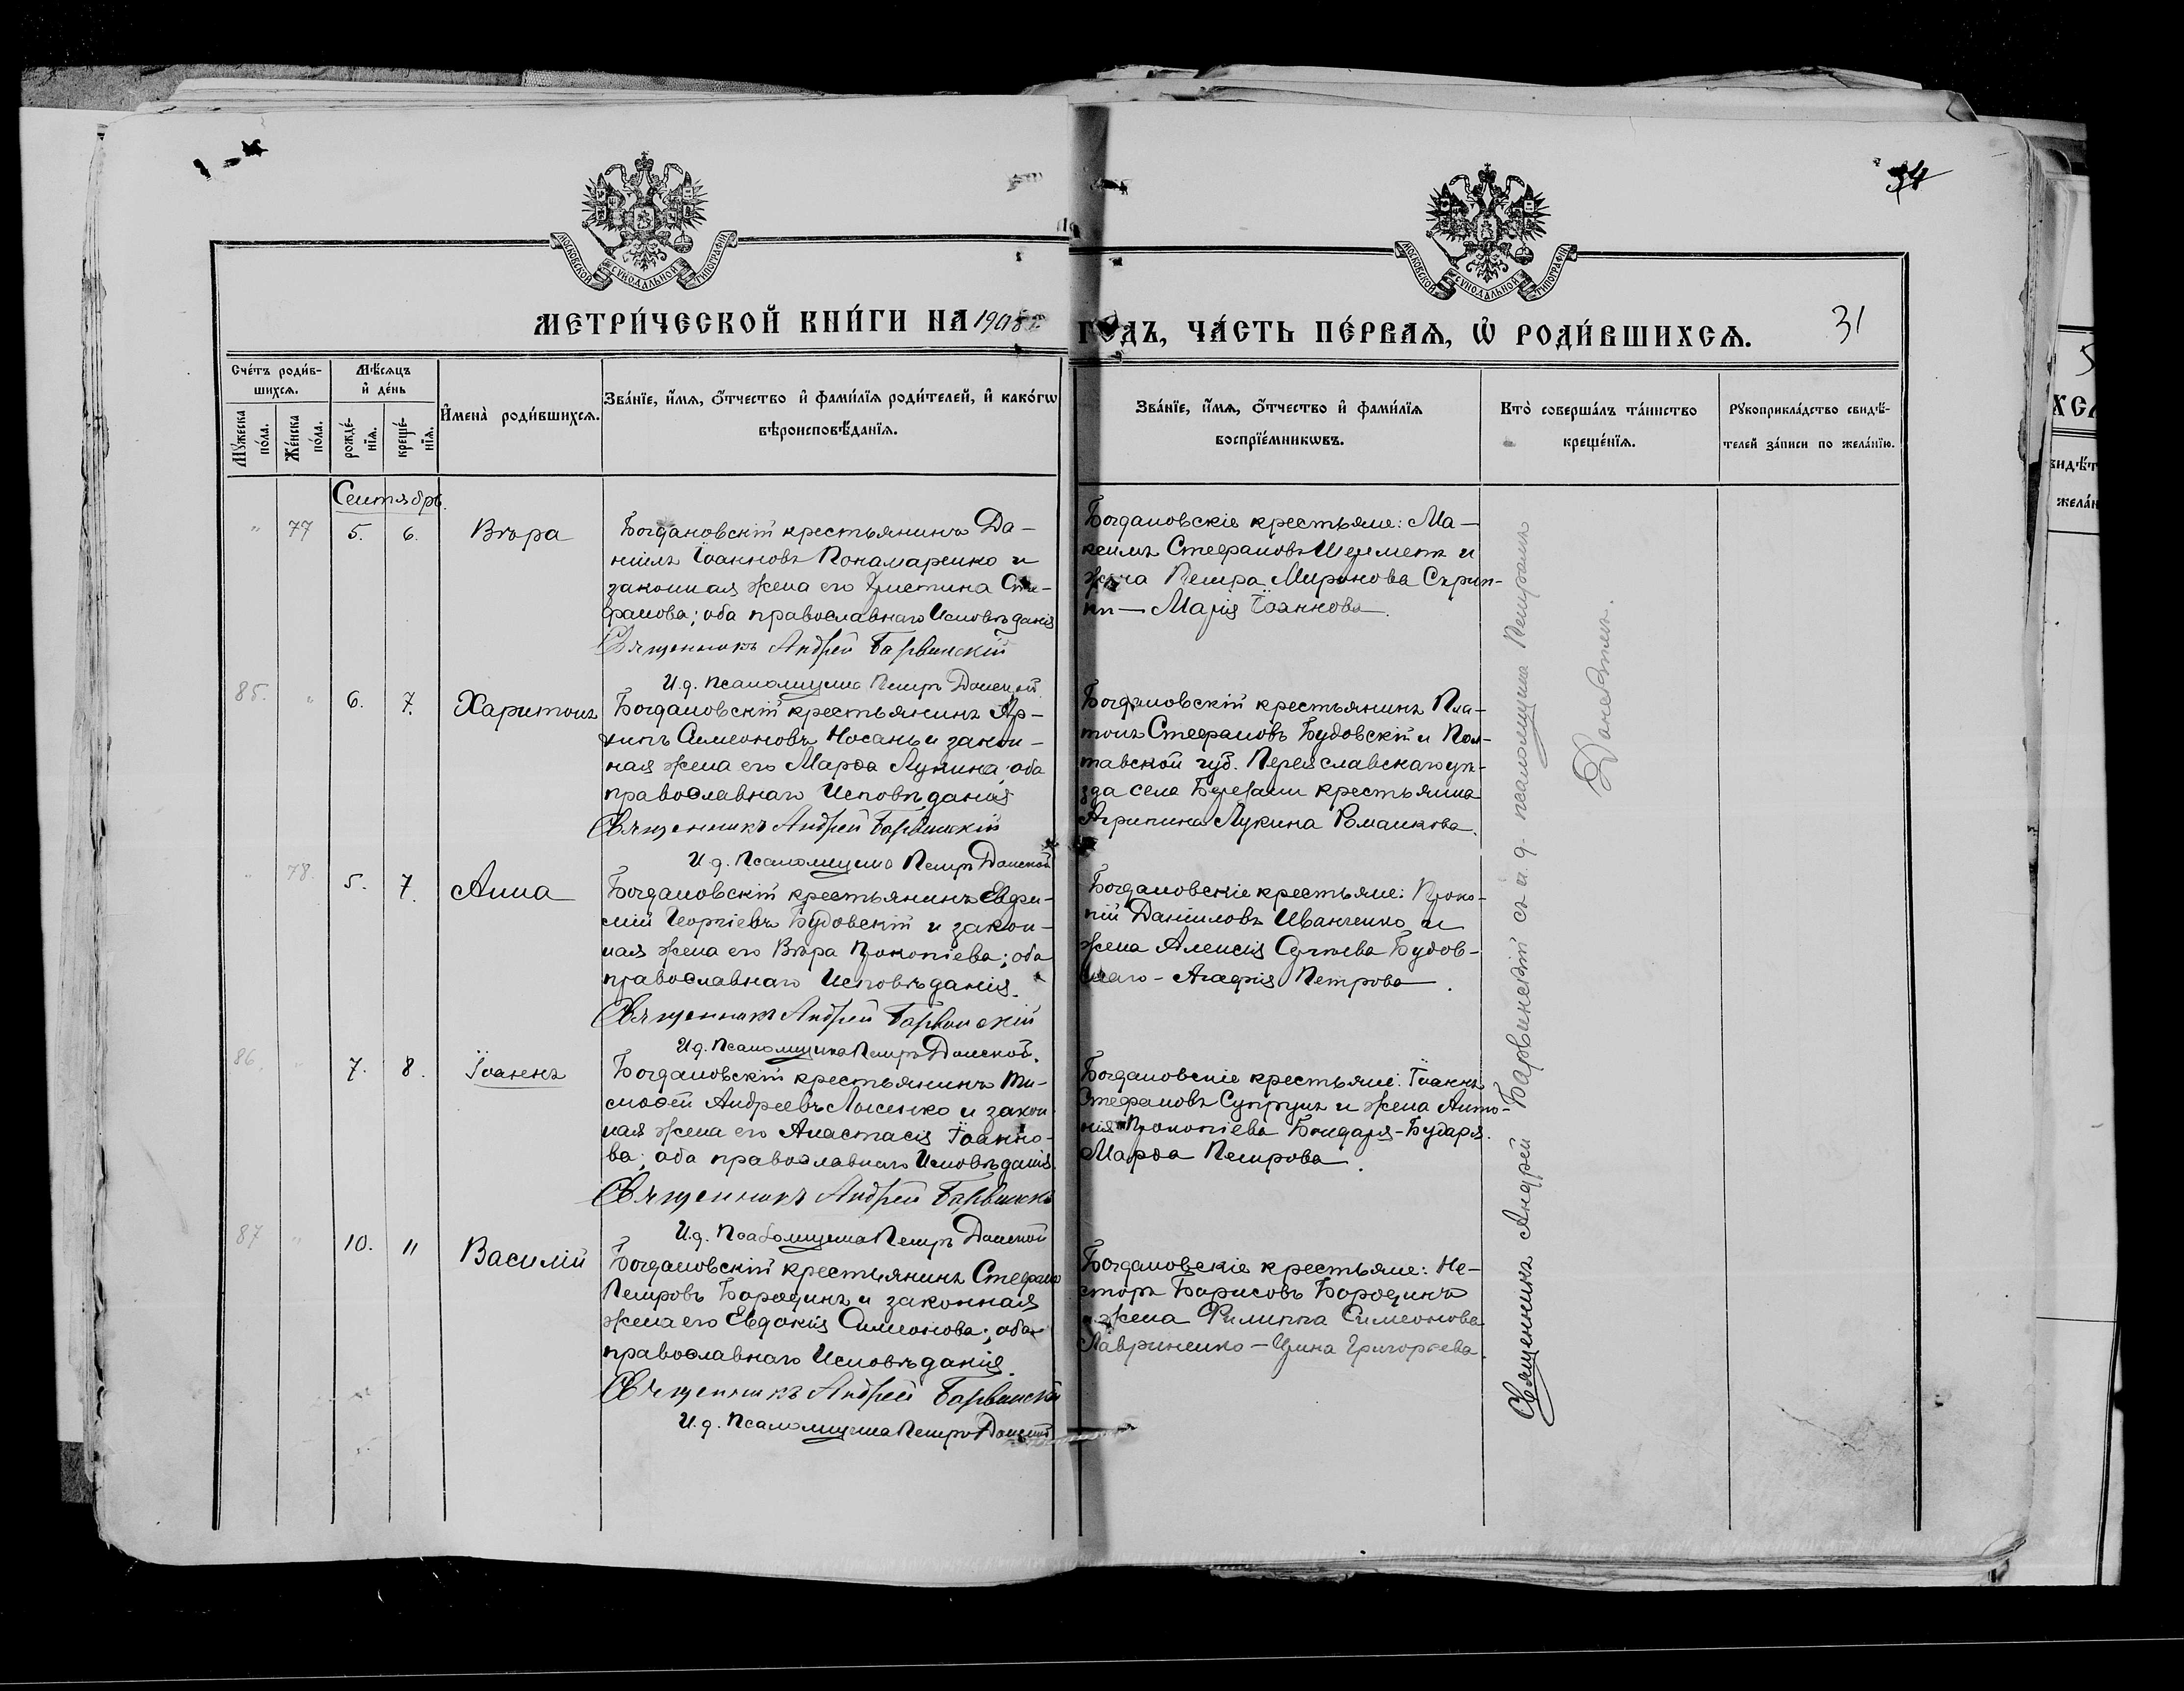 34
МОСКОВСКОЙ СѴНОДАЛЬНОЙ ТИПОГРАФІИ
МОСКОВСКОЙ СѴНОДАЛЬНОЙ ТИПОГРАФІИ
МЕТРИ́ЧЕСКОЙ КНИ́ГИ НА 1908
ГОДЪ, ЧА́СТЬ ПЕ́РВАѦ, Ѡ҆ РОДИ́ВШИХСѦ.
31
Сче́тъ роди́в-
шихсѧ.
Мѣ́сяцъ
и҆ де́нь
Мꙋ́жеска
по́ла.
Же́нска
по́ла.
рожде́-
нїѧ.
креще́-
нїѧ.
И҆мена̀ роди́вшихсѧ.
Зва́нїе, и҆́мѧ, ѻ҆́тчество и҆ фами́лїѧ роди́телей, и҆ како́гѡ
вѣроисповѣ́данїѧ.
Зва́нїе, и҆́мѧ, ѻ҆́тчество и҆ фами́лїѧ
воспрїе́мникѡвъ.
Кто̀ соверша́лъ та́инство
креще́нїѧ.
Рꙋкоприкла́дство свидѣ́-
телей за́писи по жела́нїю.
Сентябрь.
" 77 5. 6. Вѣра
Богдановскій крестьянинъ Да-
ніилъ Іоанновъ Понамаренко и
законная жена его Христина Сте-
фанова; оба православнаго Исповѣданія
Священникъ Андрей Барвинскій
И.д. псаломщика Петръ Донской
Богдановскіе крестьяне: Ма-
ксимъ Стефановъ Шеремет и
жена Петра Миронова Скрип-
ки — Марія Іоаннова.
85. " 6. 7. Харитонъ
Богдановскій крестьянинъ Ар-
хипъ Симеоновъ Носань и закон-
ная жена его Марѳа Лукина; оба
православнаго Исповѣданія
Священникъ Андрей Барвинскій
И.д. Псаломщика Петръ Донской
Богдановскій крестьянинъ Пла-
тонъ Стефановъ Будовскій и Пол-
тавской губ. Переяславскаго уѣ-
зда села Березани крестьянка
Агрипина Лукина Романкова.
" 78. 5. 7. Анна
Богдановскій крестьянинъ Евфи-
мій Георгіевъ Будовскій и закон-
ная жена его Вѣра Прокопіева; оба
православнаго Исповѣданія.
Священникъ Андрей Барвинскій
И.д. Псаломщика Петръ Донской.
Богдановскіе крестьяне: Проко-
пій Даніиловъ Иванченко и
жена Алексія Сергіева Будов-
скаго - Агафія Петрова.
86. " 7. 8. Іоаннъ
Богдановскій крестьянинъ Ти-
моѳей Андреевъ Лысенко и закон-
ная жена его Анастасія Іоанно-
ва; оба православнаго Исповѣданія.
Священникъ Андрей Барвинскій
И.д. Псаломщика Петръ Донской
Богдановскіе крестьяне: Іоаннъ
Стефановъ Супрунъ и жена Анто-
нія Прокопіева Бондаря-Бударя.
Марѳа Петрова.
87 " 10. 11 Василій
Богдановскій крестьянинъ Стефанъ
Петровъ Бородинъ и законная
жена его Евдокія Симеонова; оба
православнаго Исповѣданія.
Священникъ Андрей Барвинскій
И.д. Псаломщика Петръ Донской
Богдановскіе крестьяне: Не-
сторъ Борисовъ Бородинъ
и жена Филиппа Симеонова
Лавриненко - Ирина Григорьева.
Священникъ Андрей Барвинскій съ и.д. псаломщика Петромъ
Донскимъ.